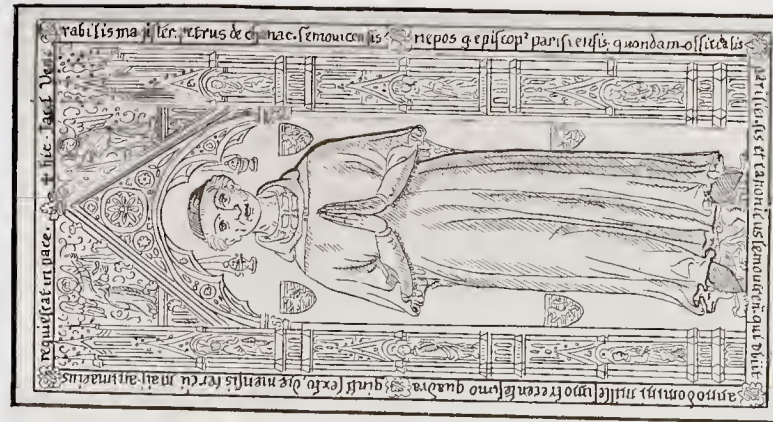 + hic. iacet Ven
rabilis magister. petrus de chanac. lemovicensis nepos q episcop² parisiensis. quondam officialis
parisiensis et canonicus lemovicen. qui obiit
anno domini millesimo trecentesimo quadra ginti sexto die mensis tercii maii. anima eius
requiescat in pace.